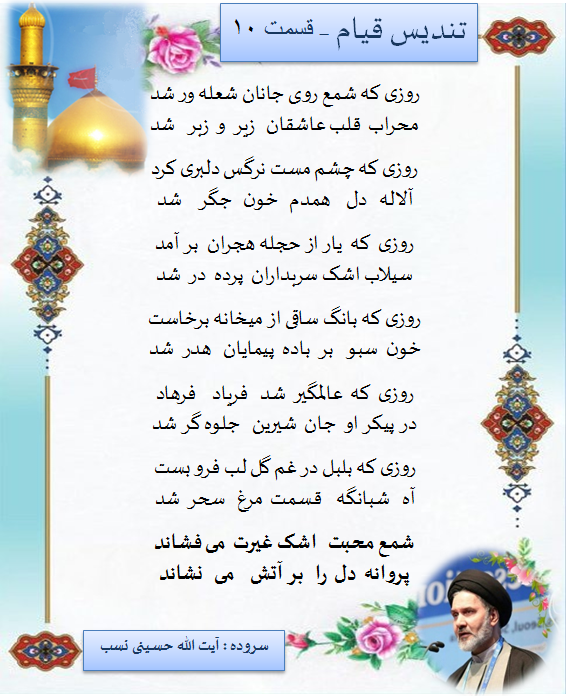 تندیس قیام - قسمت ۱۰
روزی که شمع روی جانان شعله ور شد
محراب قلب عاشقان زیر و زبر شد
روزی که چشم مست نرگس دلبری کرد
آلاله دل همدم خون جگر شد
روزی که یار از حجله هجران بر آمد
سیلاب اشک سربداران پرده در شد
روزی که بانگ ساقی از میخانه برخاست
خون سبو بر باده پیمایان هدر شد
روزی که عالمگیر شد فریاد فرهاد
در پیکر او جان شیرین جلوه گر شد
روزی که بلبل در غم گل لب فرو بست
آه شبانگه قسمت مرغ سحر شد
شمع محبت اشک غیرت می فشاند
پروانه دل را بر آتش می نشاند
سروده : آیت الله حسینی نسب